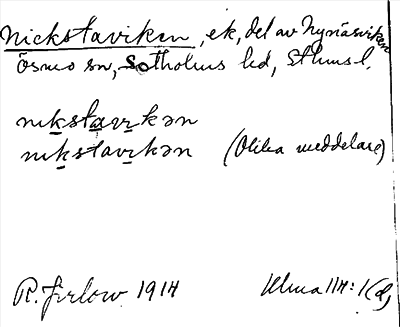 Nickstaviken, ek, del av Nynäsviken
Ösmo sn, Sotholms hd, Sthms l.
nıkstavıkən
nıkstavıkən (Olika meddelare)
R. Jirlow 1914 Ulma 114: 1(d)